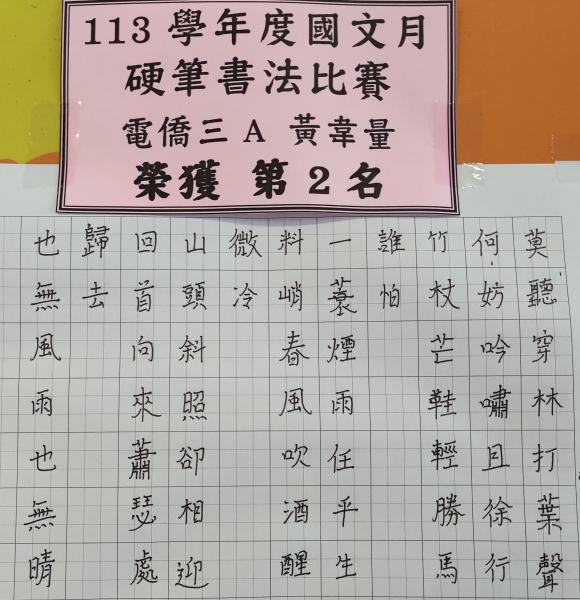 113 學年度國文月
硬筆書法比賽
電僑三 A 黃韋量
榮獲 第 2 名
莫聽穿林打葉聲
何妨吟嘯且徐行
竹杖芒鞋輕勝馬
誰怕
一蓑煙雨任平生
料峭春風吹酒醒
微冷
山頭斜照卻相迎
回首向來蕭瑟處
歸去
也無風雨也無晴